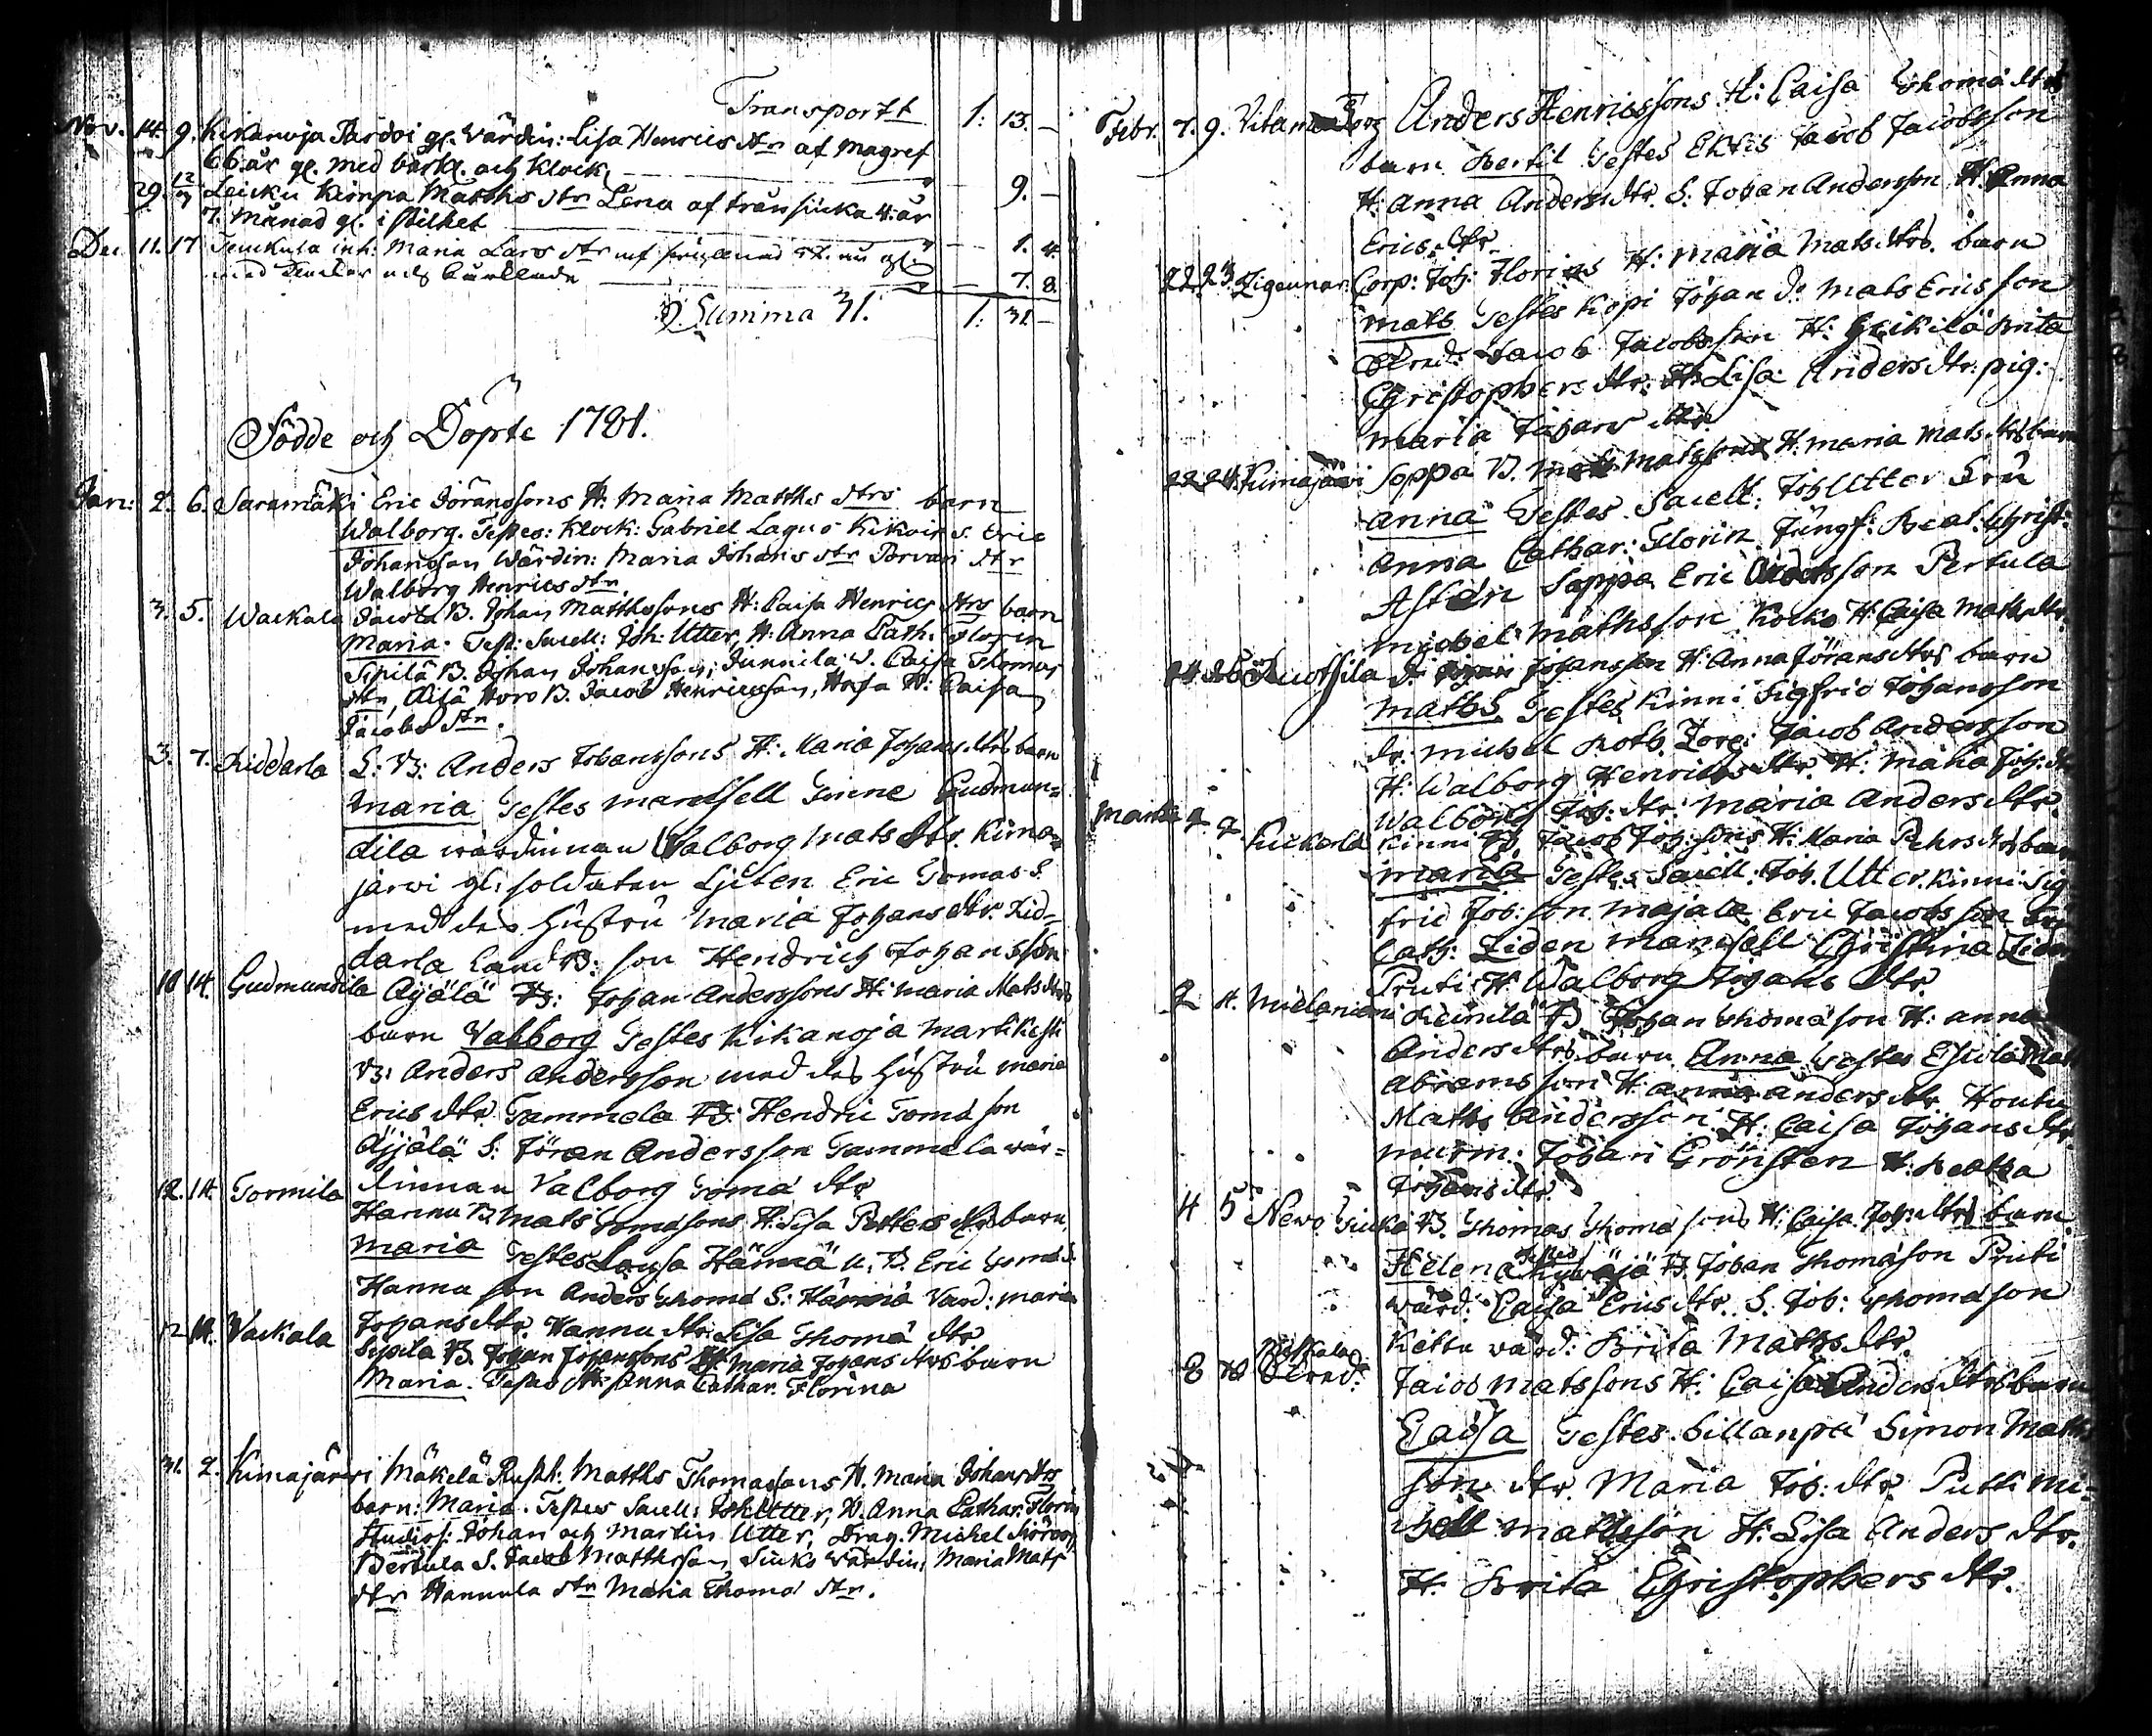 Transportt 1: 13. —
Nov. 14. 9. Kikanoja Pardvi gl. Värdin: Lisa Henrics dtr af magref
66 år gl. med barkl. och klock. — 9. —
29. Leicku Kimpa Matths dtr Lena af transiucka 4: år
7. månad gl. i stilhet — 1. 4.
Dec 11. 17 inh: Maria Lars dtr
med — 7. 8.
Summa 31. 1: 31. —
Födde och Döpte 1781.
Jan: 2. 6. Saramäki Eric Jöranssons H: Maria Matths dtrs barn
Walborg. Testes: Klock: Gabriel Lagus Kikois S. Eric
Johansson Wärdin: Maria Johans dtr Porvari dtr
Walborg Henrics dtr.
3. 5. Wackala Jacola B. Johan Matthssons H: Caisa Henrics dtrs barn
Maria. Test: Sacell: Joh: Utter, H: Anna Cath. Florin
Sipilä B. Johan Johansson, Junnila W. Caisa Thomas
dtr, Äilä Horo B. Jacob Henricsson, H: Caisa
Jacobs dtr.
3. 7. Riddarla L: B: Anders Johanssons H: Maria Johans dtrs barn
Maria Testes mamsell Gudmun=
dila wärdinnan Walborg Mats dtr. Kima=
järvi gl: soldaten Ljeten Eric Tomas S.
med des Hustru Maria Johans dtr. Rid=
darla Land B: son Hendrich Johansson
10 14. Gudmundila Äijälä B: Johan Anderssons H: Maria Mats dtrs
barn Valborg Testes Kikanoja Martikesti
B: Anders andersson med des Hustru maria
Erics dtr. Tammela B: Hendric Toma son
Äijälä S: Jöran Andersson Tammela wär=
dinnan Valborg Toma dtr
12. 14. Tormila Hannu B. Mats Tomasons H: Lisa Petters dtrs barn
Maria Testes Lassa Härmä u. B. Eric Toma S.
Hannu son Anders Thoma S: Härmä Värd: maria
Johans dtr. Hannu dtr. Lisa Thoma dtr
12 14. Vackala Sipila B. Johan Johanssons H: Maria Johans dtrs barn
Maria. Testes H: Anna Cathar. Florina
31. 2. Kimajärwi Mäkelä Rusth: Matths Thomassons H. Maria Johans dtrs
barn: Maria. Testes Sacell: Joh Utter, H. Anna Cathar. Florin
Studios: Johan och Martin Utter, Drag. Michel Siöroos
Bertula S. Jacob Matthsson, Siuko wärdin, Maria Mats
dtr Hannula dtr Maria Thoma dtr.
Febr. 7. 9. Anders Henricssons H: Caisa Thoma dtrs
barn Bertil Testes Jacob Jacobsson
H: Anna Anders dtr. S: Johan Andersson H: Anna
Erics dtr.
22. 23. Zigeunar: Corp: Joh: Florins H: Maria Mats dtrs. barn
Mats Testes Kopi Johan d: Mats Ericsson
Jacob Jacobsson H: Heikilä Brita
Christophers dtr: H: Lisa Anders dtr: pig:
Maria Johans dtr
22. 24. Kimajärvi Soppa B. Mats Matssons H: Maria Mats dtrs barn
Anna Testes Sacell: Joh Utter Fru
Anna Cathar: Florin Jungf: Beat. Christ:
Astén Soppa Eric Andersson Pertula
Michel Mathsson Kocko H: Caisa Maths dtr.
24 26 d: Johansson H: Anna Jörans dtrs barn
Maths Testes Kinni Sigfric Johansson
dr: Michel Roth. Jacob Andersson
H: Walborg Henrics dtr. H: Maria Joh: dtr
Walborg Joh: dtr: Maria Anders dtr.
Martii 2 2 Kuckarla Kinni B. Jacob Joh: sons H: Maria Pehrs dtrs barn
Maria Testes Sacell: Joh. Utter. Kinni Sig=
fric Joh: son Majala Eric Jacobsson Fru
Cath: Ziden Mamsell Christina Ziden
Pruti H: Walborg Johans dtr
2 4. Heinilä B Johan Thomason H: Anna
Anders dtrs barn Anna Testes
Abramsson H: Anna Anders dtr
Maths Andersson H: Caisa Johans dtr
Murm: Johan Grönsten H: Beatha
Johans dtr.
4 5 Nevo Siuka B. Thomas Thomasons H: Caisa Joh: dtrs barn.
Helena Testes B. Johan Thomason Pruti
Wärd: Caisa Erics dtr. S. Joh: Thomason
Kettu värd: Brita Maths dtr.
8 10 Jacob Matssons H: Caisa Anders dtrs barn
Caisa Testes Sillanpä Simon Maths
son dtr. Maria Joh: dtr. Putti Mi=
chell Mathsson H: Lisa Anders dtr.
H: Brita Christophers dtr.